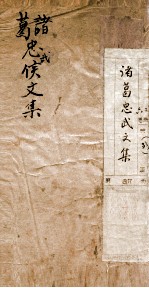 諸葛忠武侯文集
諸葛忠武文集